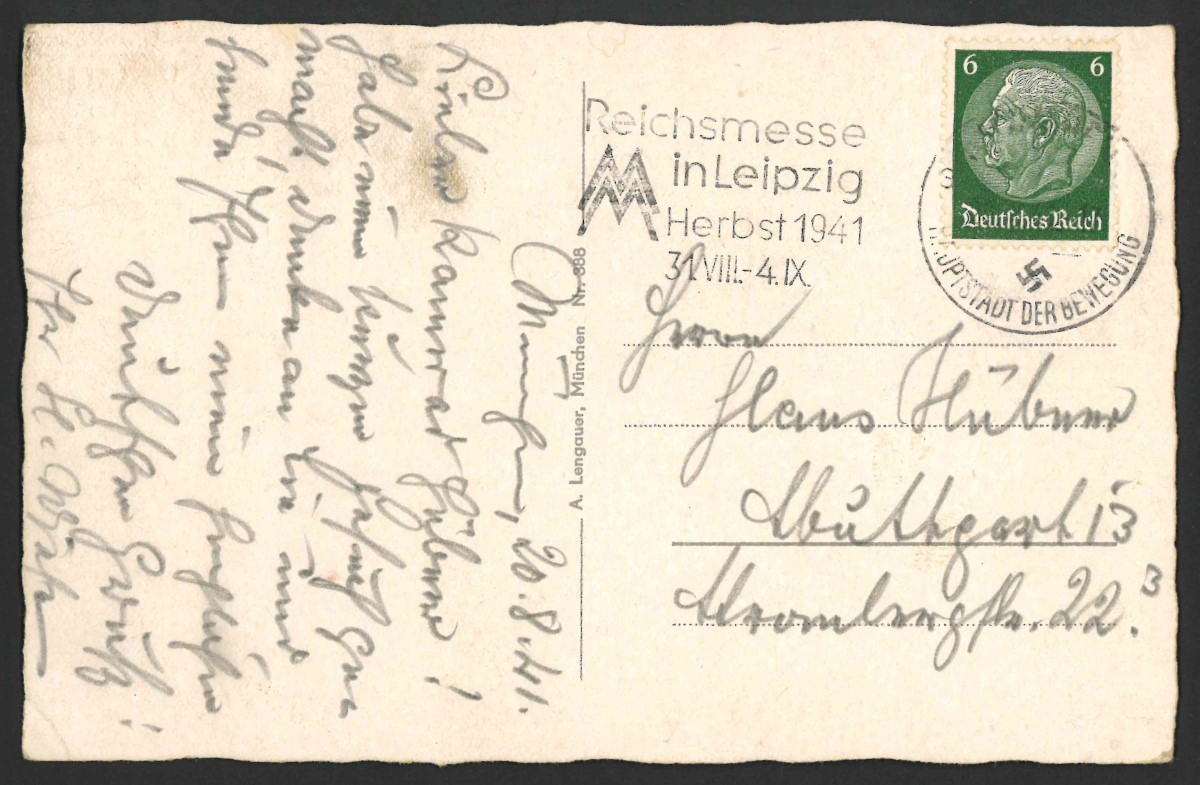 Reichsmesse
in Leipzig
Herbst 1941
31.VIII.-4.IX.
6 6
Deutsches Reich
HAUPTSTADT DER BEWEGUNG
A. Lengauer, München Nr. 888
München, 20.8.41.
Lieber Kamerad Hübner!
Habe einen kurzen
macht denke an Sie und
sende Ihnen meine herzlichen
deutschen Grüße!
Ihr H.
Herrn
Hans Hübner
Stuttgart 13
Strombergstr. 22.³